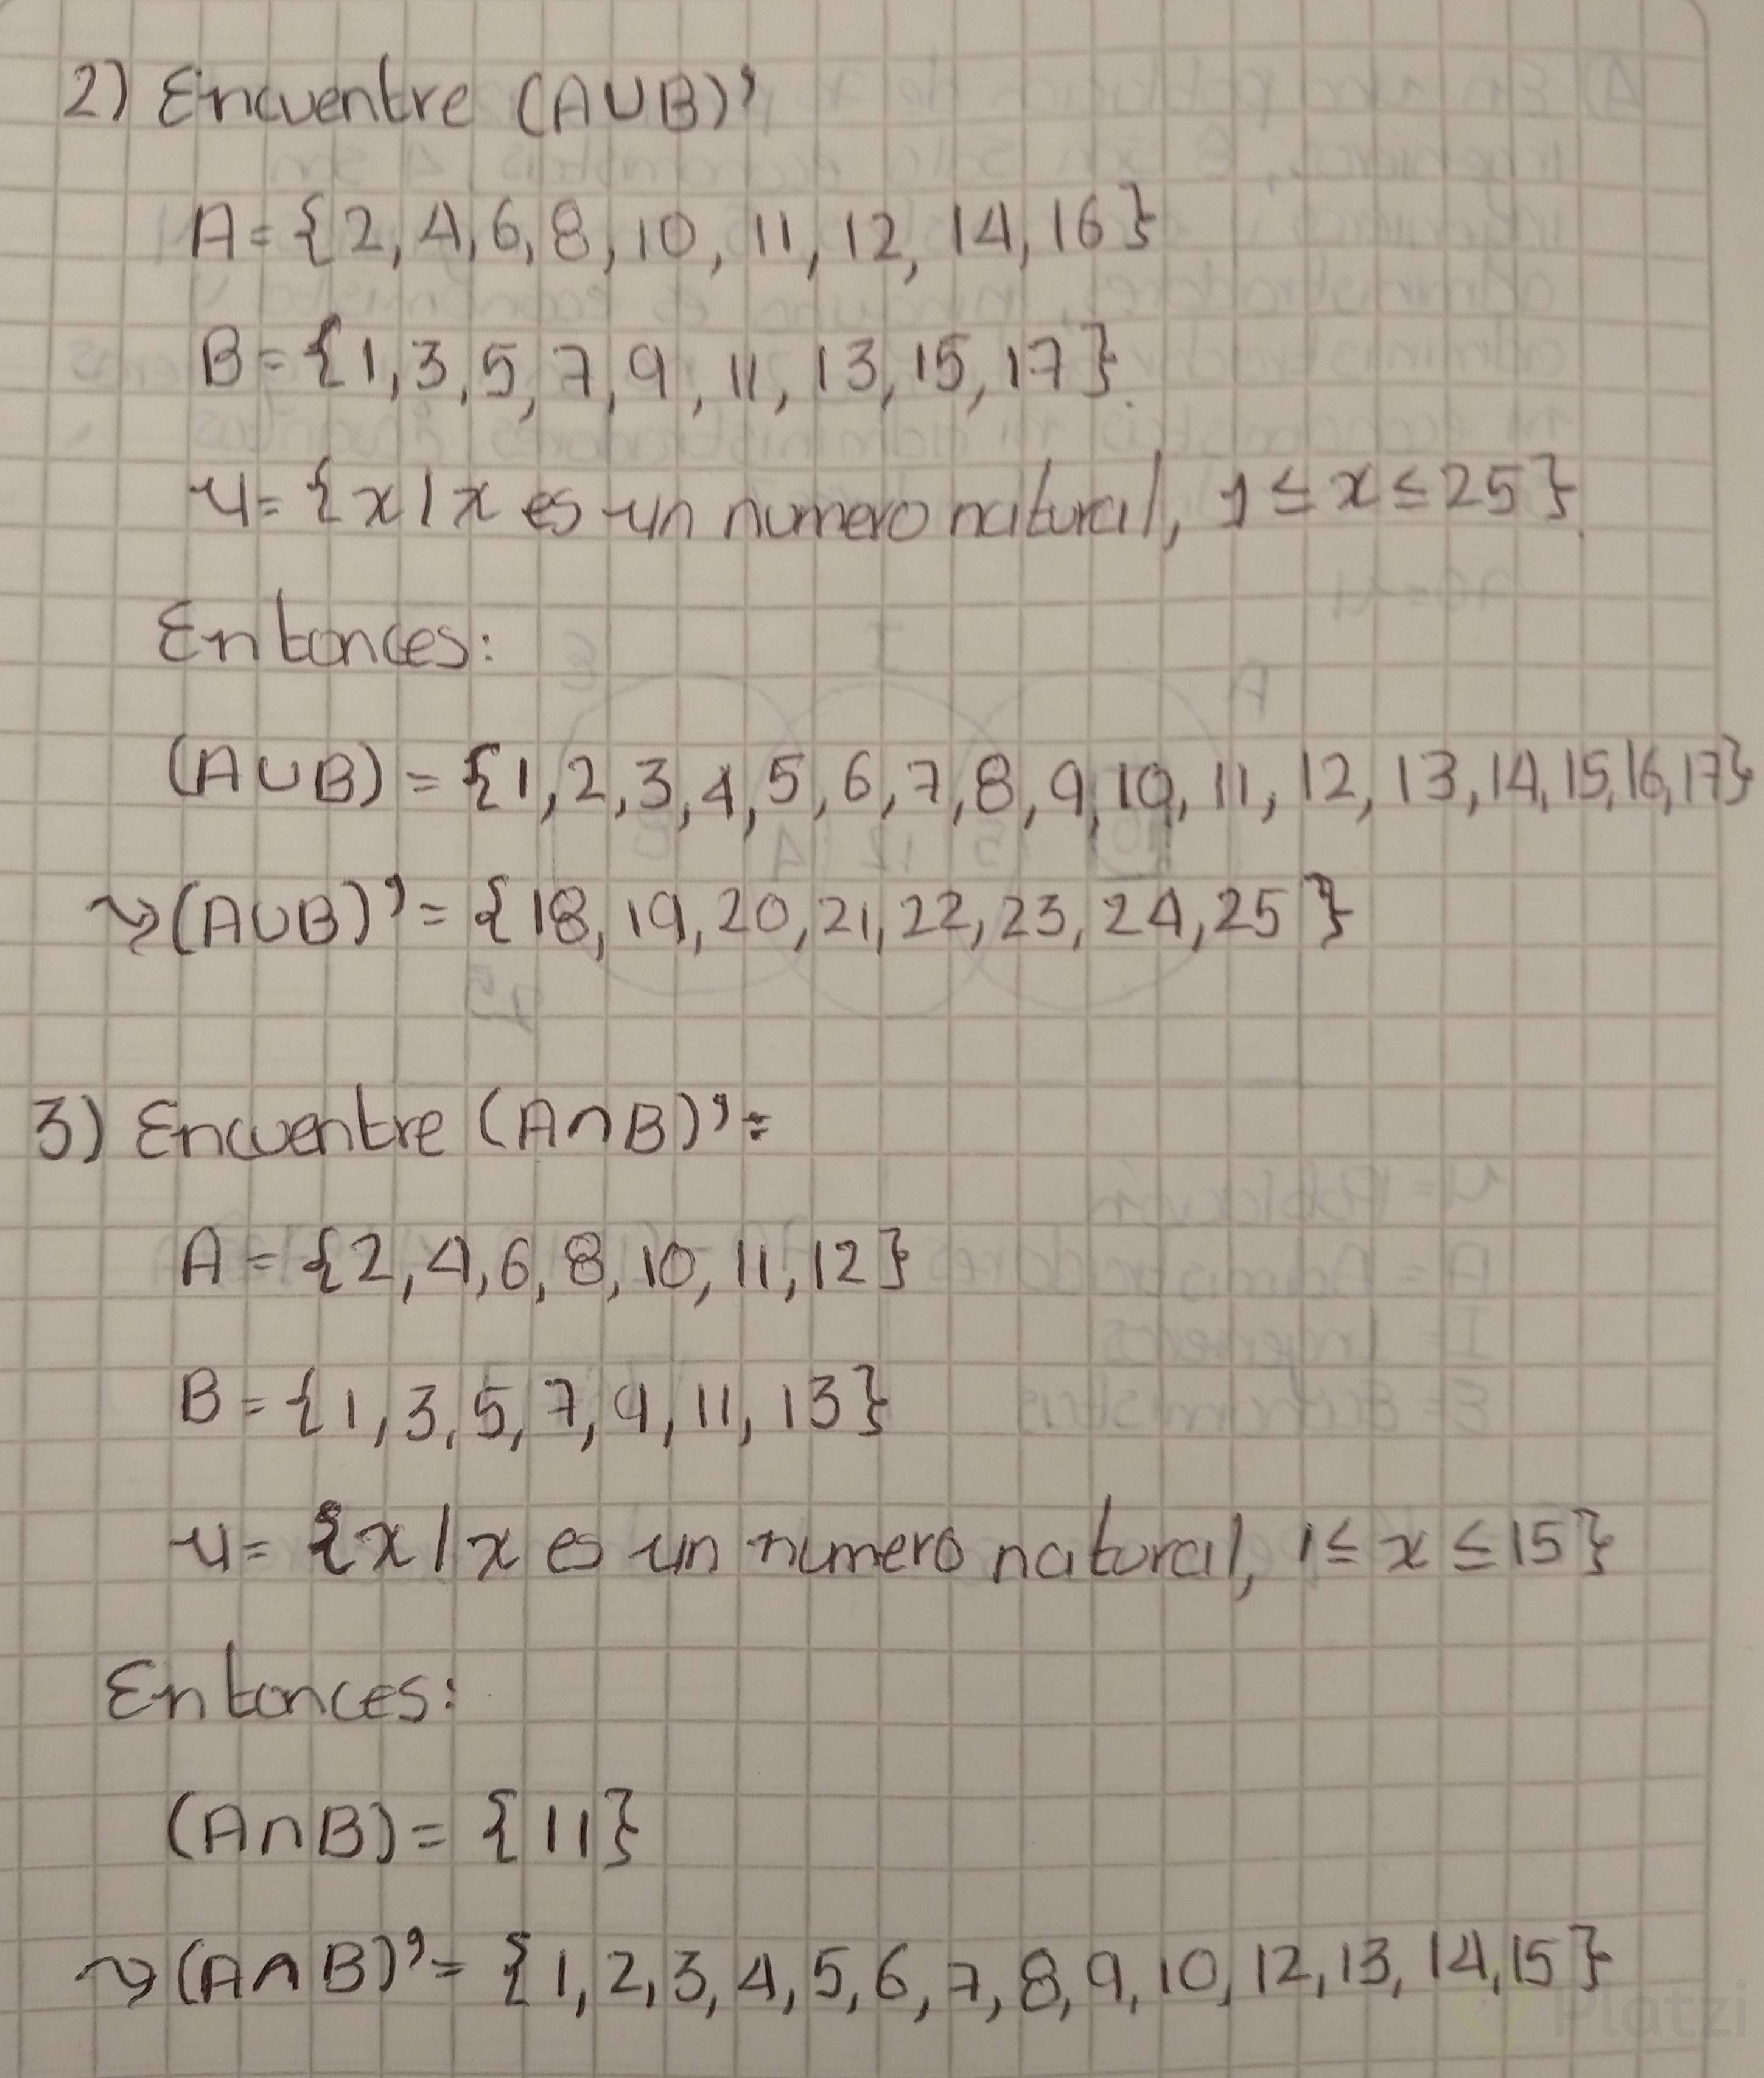 2) Encuentre (A∪B)'
A = {2, 4, 6, 8, 10, 11, 12, 14, 16}
B = {1, 3, 5, 7, 9, 11, 13, 15, 17}.
U = {x / x es un numero natural, 1 ≤ x ≤ 25}.
Entonces:
(A∪B) = {1, 2, 3, 4, 5, 6, 7, 8, 9, 10, 11, 12, 13, 14, 15, 16, 17}
↝ (A∪B)' = {18, 19, 20, 21, 22, 23, 24, 25}
3) Encuentre (A∩B)' =
A = {2, 4, 6, 8, 10, 11, 12}
B = {1, 3, 5, 7, 9, 11, 13}
U = {x / x es un numero natural, 1 ≤ x ≤ 15}
Entonces:
(A∩B) = {11}
↝ (A∩B)' = {1, 2, 3, 4, 5, 6, 7, 8, 9, 10, 12, 13, 14, 15}
Platzi